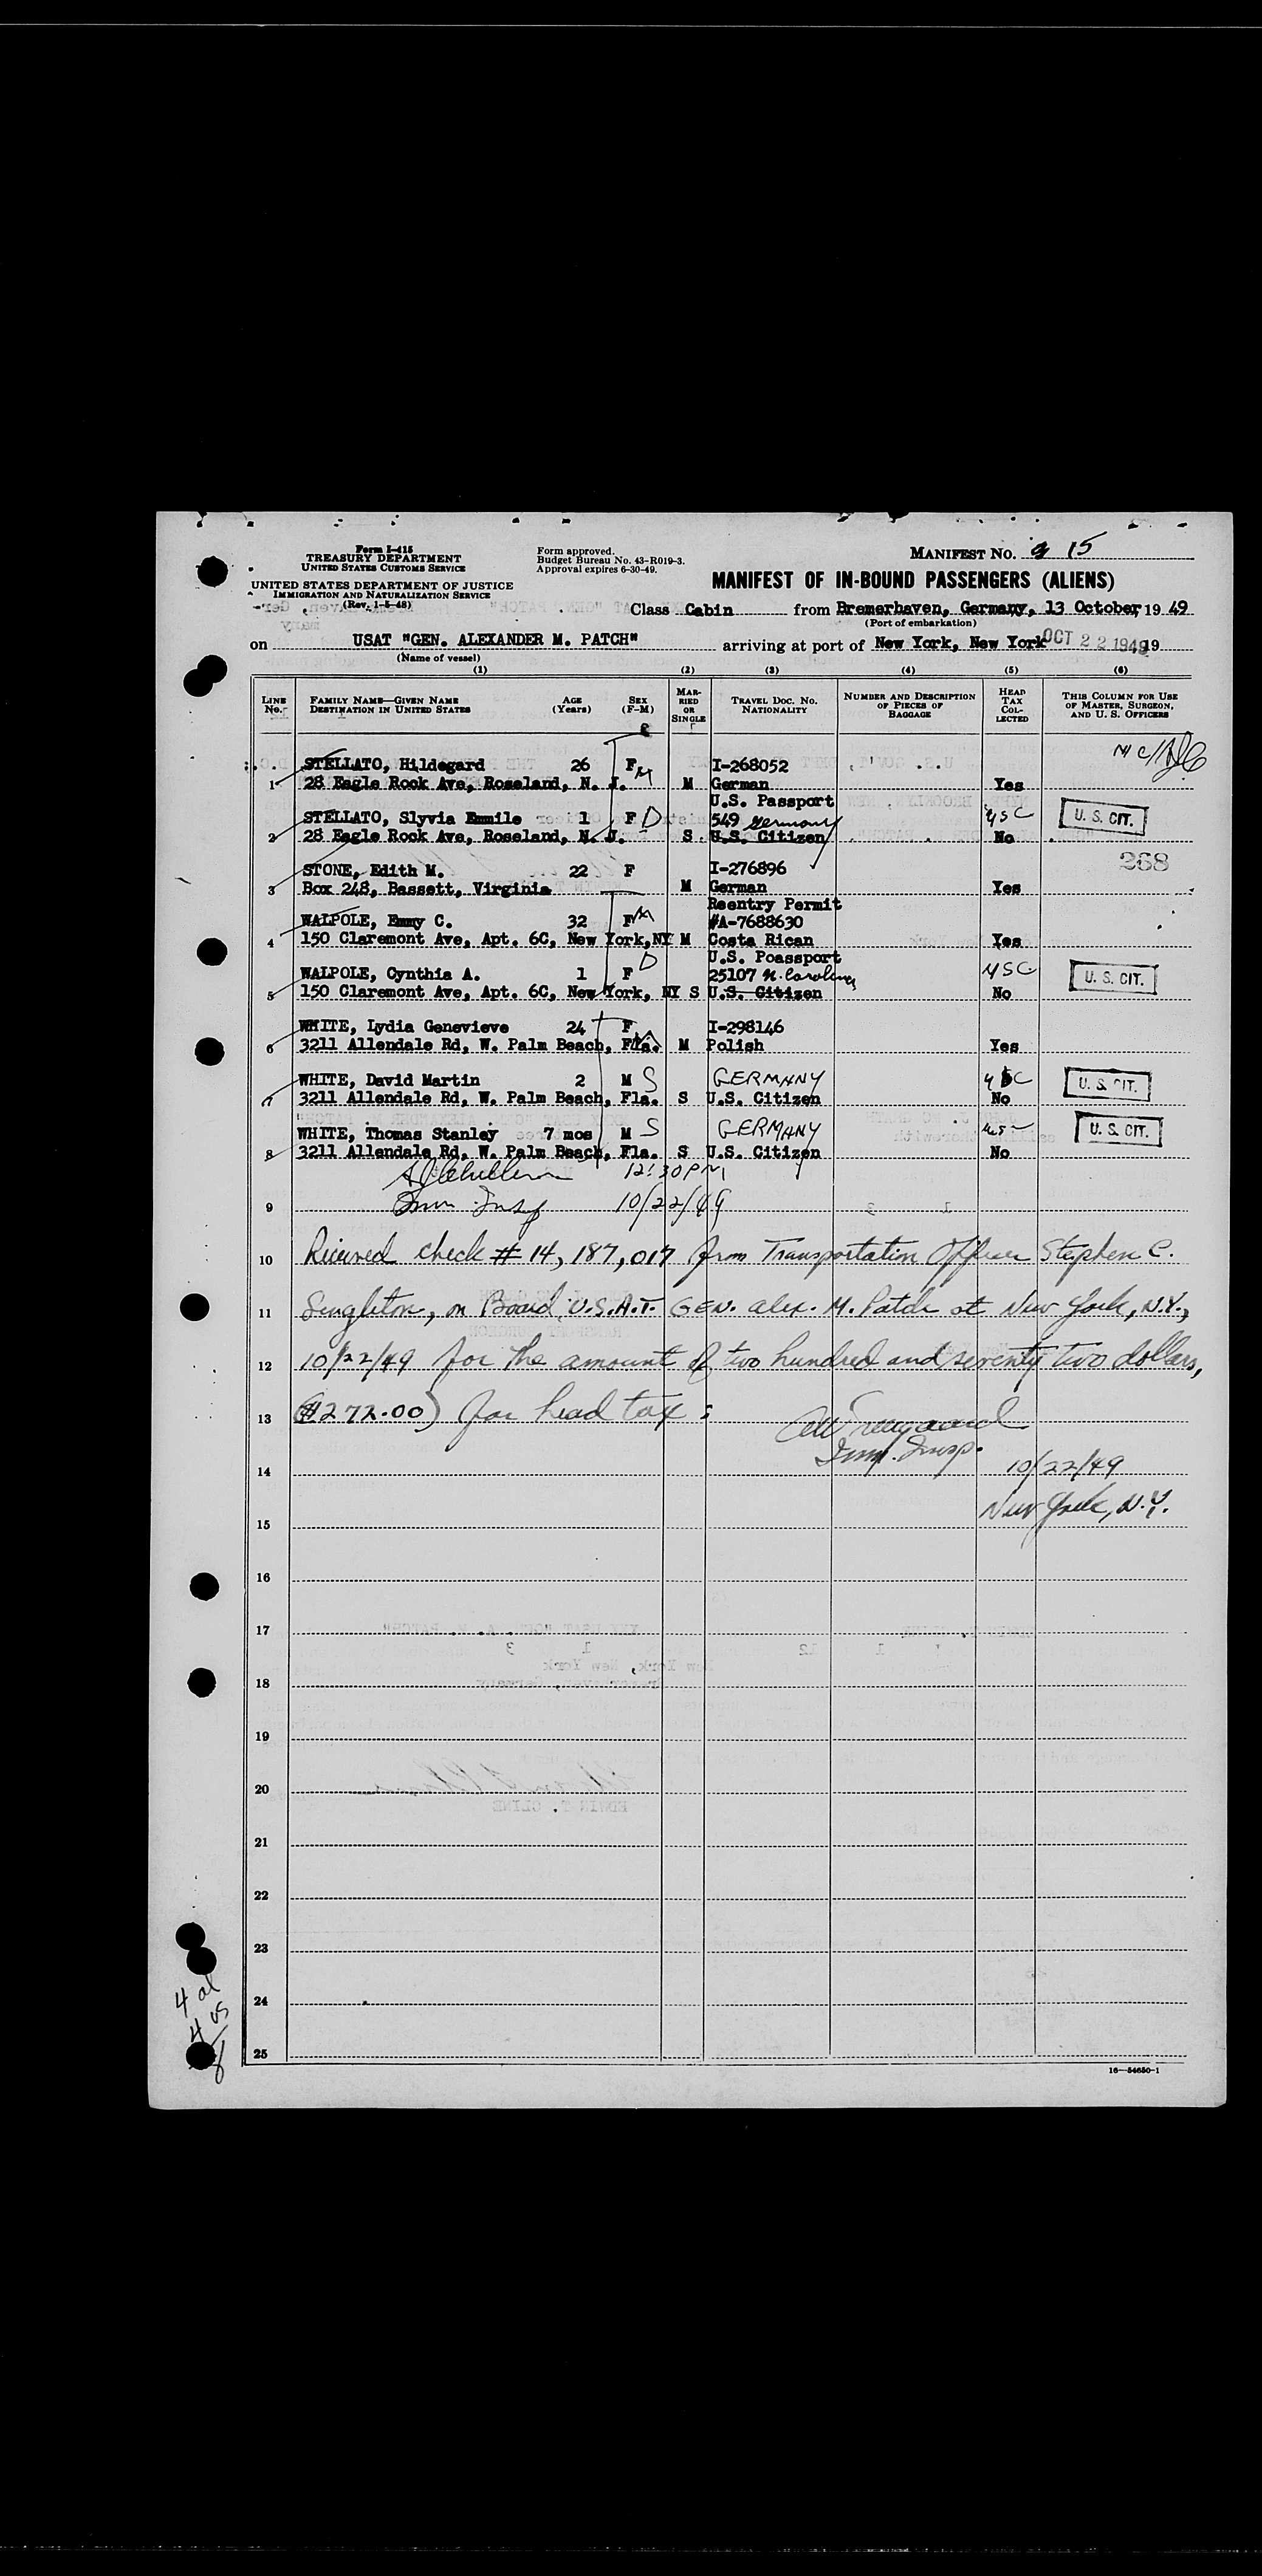 Form I-415
TREASURY DEPARTMENT
UNITED STATES CUSTOMS SERVICE
UNITED STATES DEPARTMENT OF JUSTICE
IMMIGRATION AND NATURALIZATION SERVICE
(Rev. 1-5-48)
Form approved.
Budget Bureau No. 43-R019-3.
Approval expires 6-30-49.
MANIFEST NO. 15
MANIFEST OF IN-BOUND PASSENGERS (ALIENS)
Class Cabin from Bremerhaven, Germany, 13 October, 19 49
(Port of embarkation)
on USAT "GEN. ALEXANDER M. PATCH" arriving at port of New York, New York OCT 22 1949 19
(Name of vessel)
(1) (2) (3) (4) (5) (6)
LINE No. FAMILY NAME—GIVEN NAME DESTINATION IN UNITED STATES AGE (Years) SEX (F-M) MARRIED OR SINGLE TRAVEL DOC. NO. NATIONALITY NUMBER AND DESCRIPTION OF PIECES OF BAGGAGE HEAD TAX COLLECTED THIS COLUMN FOR USE OF MASTER, SURGEON, AND U. S. OFFICERS
STELLATO, Hildegard 26 F M I-268052
1 28 Eagle Rock Ave, Roseland, N. J. M German Yes
U.S. Passport
STELLATO, Slyvia Emmile 1 F D 549 Germany USC U. S. CIT.
2 28 Eagle Rock Ave, Roseland, N. J. S U.S. Citizen No
STONE, Edith M. 22 F I-276896 268
3 Box 248, Bassett, Virginia M German Yes
Reentry Permit
WALPOLE, Emmy C. 32 F M #A-7688630
4 150 Claremont Ave, Apt. 6C, New York, NY M Costa Rican Yes
U.S. Poassport
WALPOLE, Cynthia A. 1 F D 25107 N. Carolina USC U. S. CIT.
5 150 Claremont Ave, Apt. 6C, New York, NY S U.S. Citizen No
WHITE, Lydia Genevieve 24 F M I-298146
6 3211 Allendale Rd, W. Palm Beach, Fla. M Polish Yes
WHITE, David Martin 2 M S GERMANY USC U. S. CIT.
7 3211 Allendale Rd, W. Palm Beach, Fla. S U.S. Citizen No
WHITE, Thomas Stanley 7 mos M S GERMANY USC U. S. CIT.
8 3211 Allendale Rd, W. Palm Beach, Fla. S U.S. Citizen No
12:30 PM
9 Imm. Insp 10/22/49
10 Received check # 14,187,017 from Transportation Officer Stephen C.
11 Singleton, on Board U.S.A.T. GEN. Alex. M. Patch at New York, N.Y.,
12 10/22/49 for the amount of two hundred and seventy two dollars,
13 ($272.00) for head tax.
Imm. Insp.
14 10/22/49
New York, N.Y.
15
16
17
18
19
20
21
22
23
24
25
4 al
4 US
8
16—54650-1